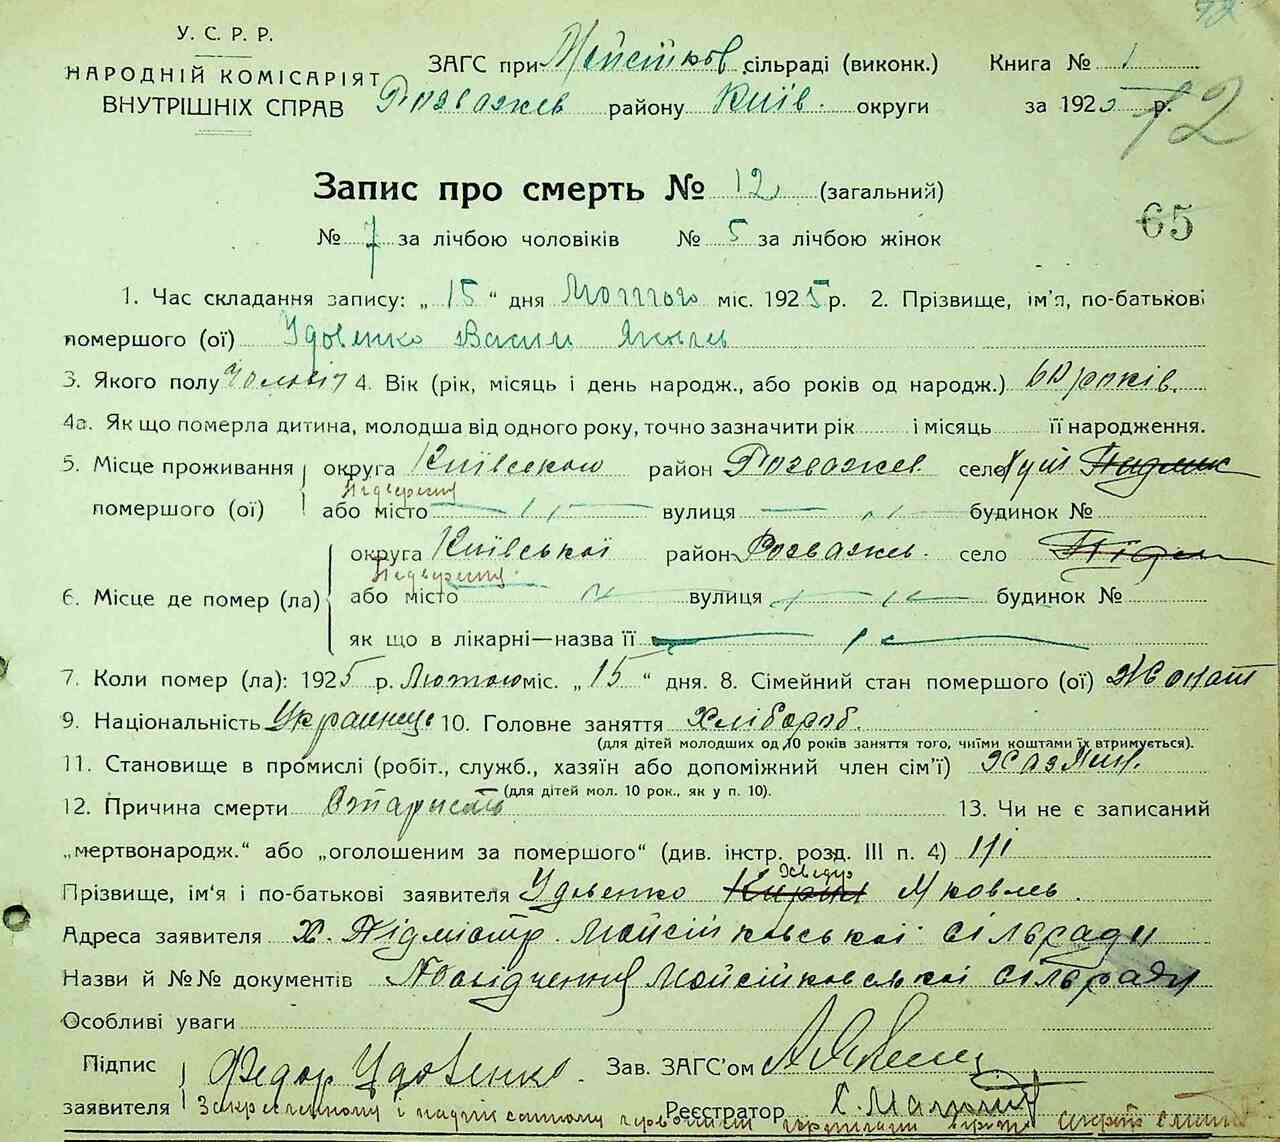 У. С. Р. Р.
НАРОДНІЙ КОМІСАРІЯТ
ВНУТРІШНІХ СПРАВ
ЗАГС при Мойсійков. сільраді (виконк.) Книга № 1
Розважев району Київ. округи за 1925 р.
12
Запис про смерть № 12 (загальний)
65
№ 7 за лічбою чоловіків № 5 за лічбою жінок
1. Час складання запису: „15“ дня Лютого міс. 1925 р. 2. Прізвище, ім'я, по-батькові
помершого (ої) Удовенко Васил Яковлев
3. Якого полу 4. Вік (рік, місяць і день народж., або років од народж.) 60 років.
4а. Як що померла дитина, молодша від одного року, точно зазначити рік і місяць її народження.
5. Місце проживання округа Київського район Розважев село
помершого (ої) або місто вулиця будинок №
округа Київської район Розважев. село
6. Місце де помер (ла) або місто вулиця будинок №
як що в лікарні—назва її
7. Коли помер (ла): 1925 р. Лютого міс. „15“ дня. 8. Сімейний стан помершого (ої) Жонат
9. Національність Украинець 10. Головне заняття Хлібороб.
(для дітей молодших од 10 років заняття того, чиїми коштами їх втримується).
11. Становище в промислі (робіт., служб., хазяїн або допоміжний член сім'ї) Хазяин.
(для дітей мол. 10 рок., як у п. 10).
12. Причина смерти Старисть 13. Чи не є записаний
„мертвонародж.“ або „оголошеним за помершого“ (див. інстр. розд. III п. 4)
Прізвище, ім'я і по-батькові заявителя Удовенко Хведир Яковлев.
Адреса заявителя х. Мойсійковської сільради
Назви й №№ документів Посвідчення Мойсійковської сільради
Особливі уваги
Підпис Федор Удовенко. Зав. ЗАГС'ом
заявителя Реєстратор